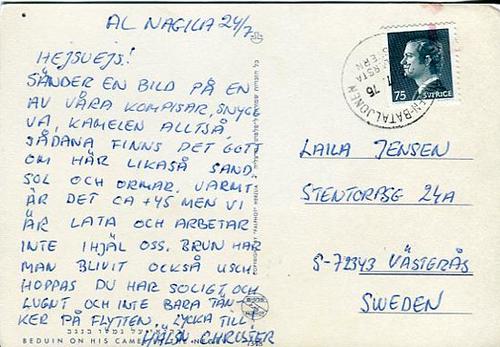 AL NAGILA 24/7
HEJSVEJS!
SÄNDER EN BILD PÅ EN
AV VÅRA KOMPISAR, SNYGG
VA, KAMELEN ALLTSÅ
SÅDANA FINNS DET GOTT
OM HÄR LIKASÅ SAND
SOL OCH ORMAR. VARMT
ÄR DET CA +45 MEN VI
ÄR LATA OCH ARBETAR
INTE IHJÄL OSS. BRUN HAR
MAN BLIVIT OCKSÅ USCH
HOPPAS DU HAR SOLIGT OCH
LUGNT OCH INTE BARA TÄN-
KER PÅ FLYTTEN. LYCKA TILL
HÄLSN CHRISTER
BEDUIN ON HIS CAMEL
75 SVERIGE
N-BATALJONEN
76
LAILA JENSEN
STENTORPSG 24A
S-72343 VÄSTERÅS
SWEDEN